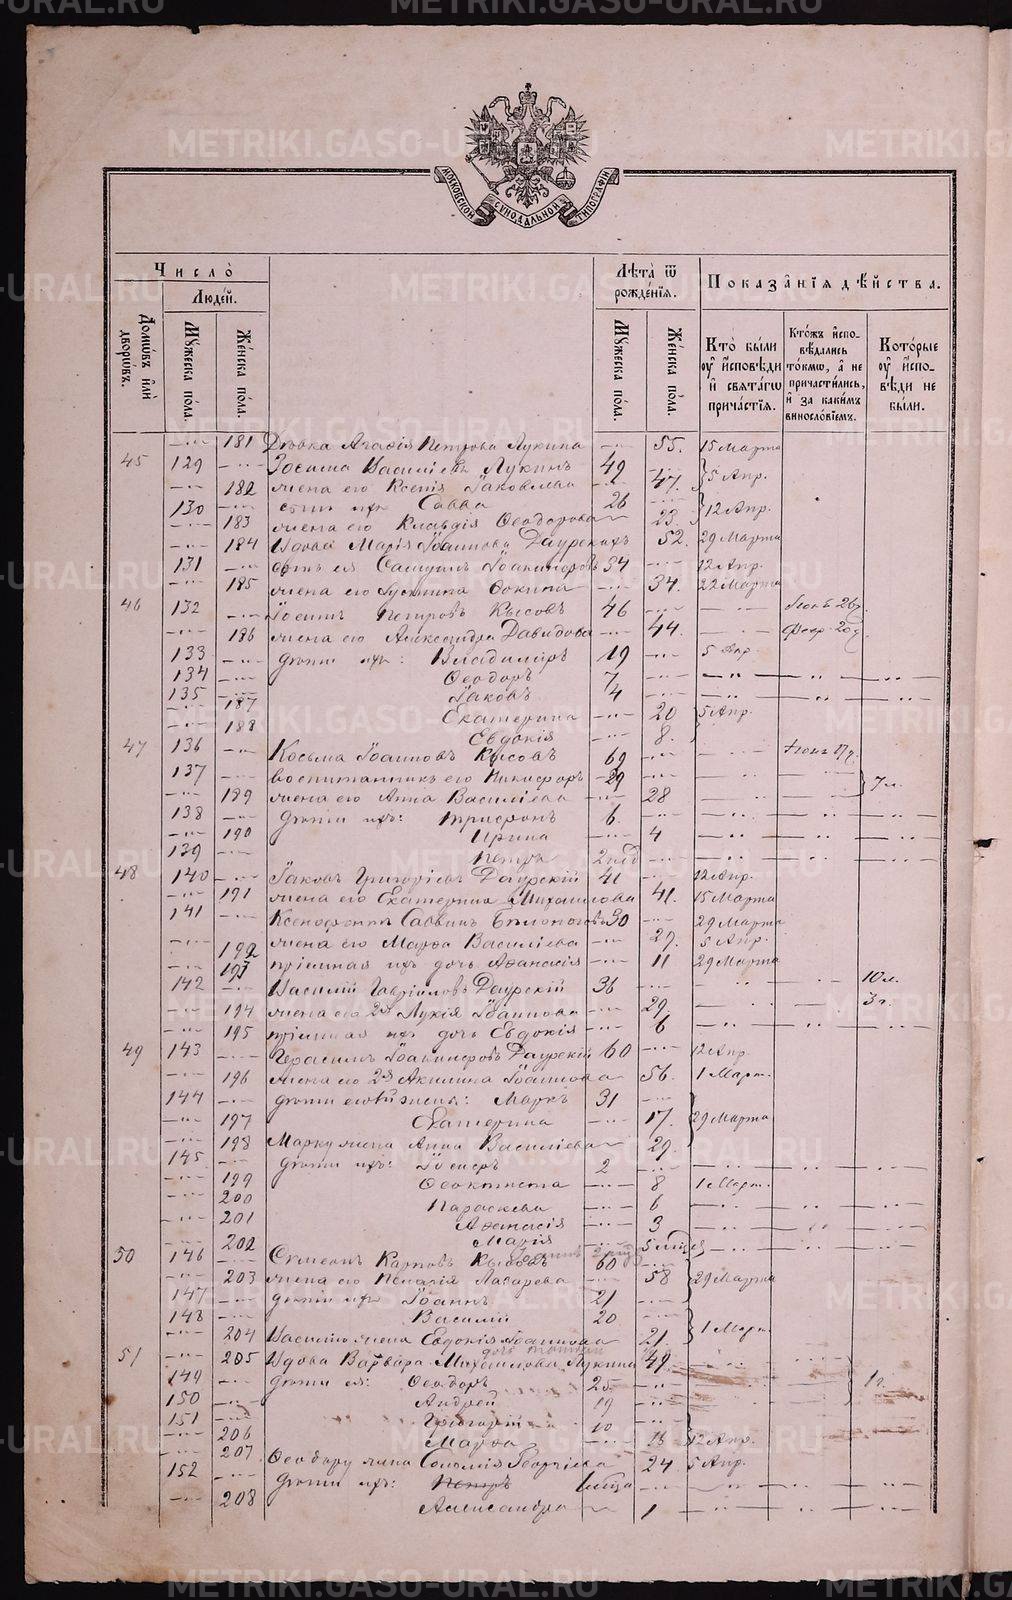 МОСКОВСКОЙ СѴНОДАЛЬНОЙ ТИПОГРАФІИ
Число̀
Людей.
Домѡвъ или дворѡвъ.
Мꙋжеска пола.
Женска пола.
Лѣта ѿ рожденїѧ.
Мꙋжеска пола.
Женска пола.
Показанїѧ дѣйства.
Кто были оу исповѣди и свѧтагѡ причастїѧ.
Ктожъ исповѣдались токмѡ, а не причастились, и за какимъ винословїемъ.
Которые оу исповѣди не были.
181 Дѣвка Агафія Петрова Лукина 55. 15 Марта
45 129 Зосима Василіевъ Лукинъ 49
182 жена его Ксенія Іаковлева 47. 5 Апр.
130 сынъ ихъ Савва 26
183 жена его Клавдія Ѳеодорова 23 12 Апр.
184 Вдова Марія Іоаннова Даурскихъ 52. 29 Марта
131 сынъ ея Самуилъ 34 12 Апр.
185 жена его 34. 22 Марта
46 132 Петровъ Кысовъ 46
186 жена его Александра Давидова 44. Февр. 20
133 дѣти ихъ: Владиміръ 19 5 Апр
134 Ѳеодоръ 7
135 Іаковъ 4
187 Екатерина 20 5 Апр.
188 Евдокія 8.
47 136 Косьма Іоанновъ Кысовъ 69
137 воспитанникъ его Никифоръ 29
189 жена его Анна Василіева 28 7 л.
138 дѣти ихъ: Трифонъ 6.
190 Ирина 4
139 Петръ 2 нед
48 140 Іаковъ Григоріевъ Даурскій 41 12 Апр.
191 жена его Екатерина Михаилова 41. 15 Марта
141 Ксенофонтъ Саввинъ 30 29 Марта
192 жена его Марѳа Василіева 29. 5 Апр.
193 пріемная ихъ дочь Аѳанасія 11 29 Марта
142 Василій Гавріиловъ Даурскій 36 10 л.
194 жена его 2я Лукія Іоаннова 29. 3 г.
195 пріемная ихъ дочь Евдокія 6
49 143 Герасимъ Даурскій 60 12 Апр.
196 жена его 2я Акилина Іоаннова 56. 1 Март.
144 дѣти жены: Маркъ 31
197 Екатерина 17. 29 Марта
198 Марку жена Анна Василіева 29.
145 дѣти ихъ: 2
199 Ѳеоктиста 8 1 Март.
200 Параскева 6
201 Аѳанасія 3
202 Марія 5
50 146 Симеонъ Карповъ Кысовъ 60
203 жена его Пелагія Лазарева 58 29 Марта
147 дѣти ихъ Іоаннъ 21
148 Василій 20
204 Василію жена Евдокія Іоаннова 21. 1 Март
51 205 Вдова Варвара Михаилова Лукина 49.
149 дѣти ея: Ѳеодоръ 25 1 г.
150 Андрей 19
151 Григорій 10
206 Марѳа 13 12 Апр.
207 Ѳеодору жена Георгіева 24 5 Апр.
152 дѣти ихъ: Петръ
208 Александра 1